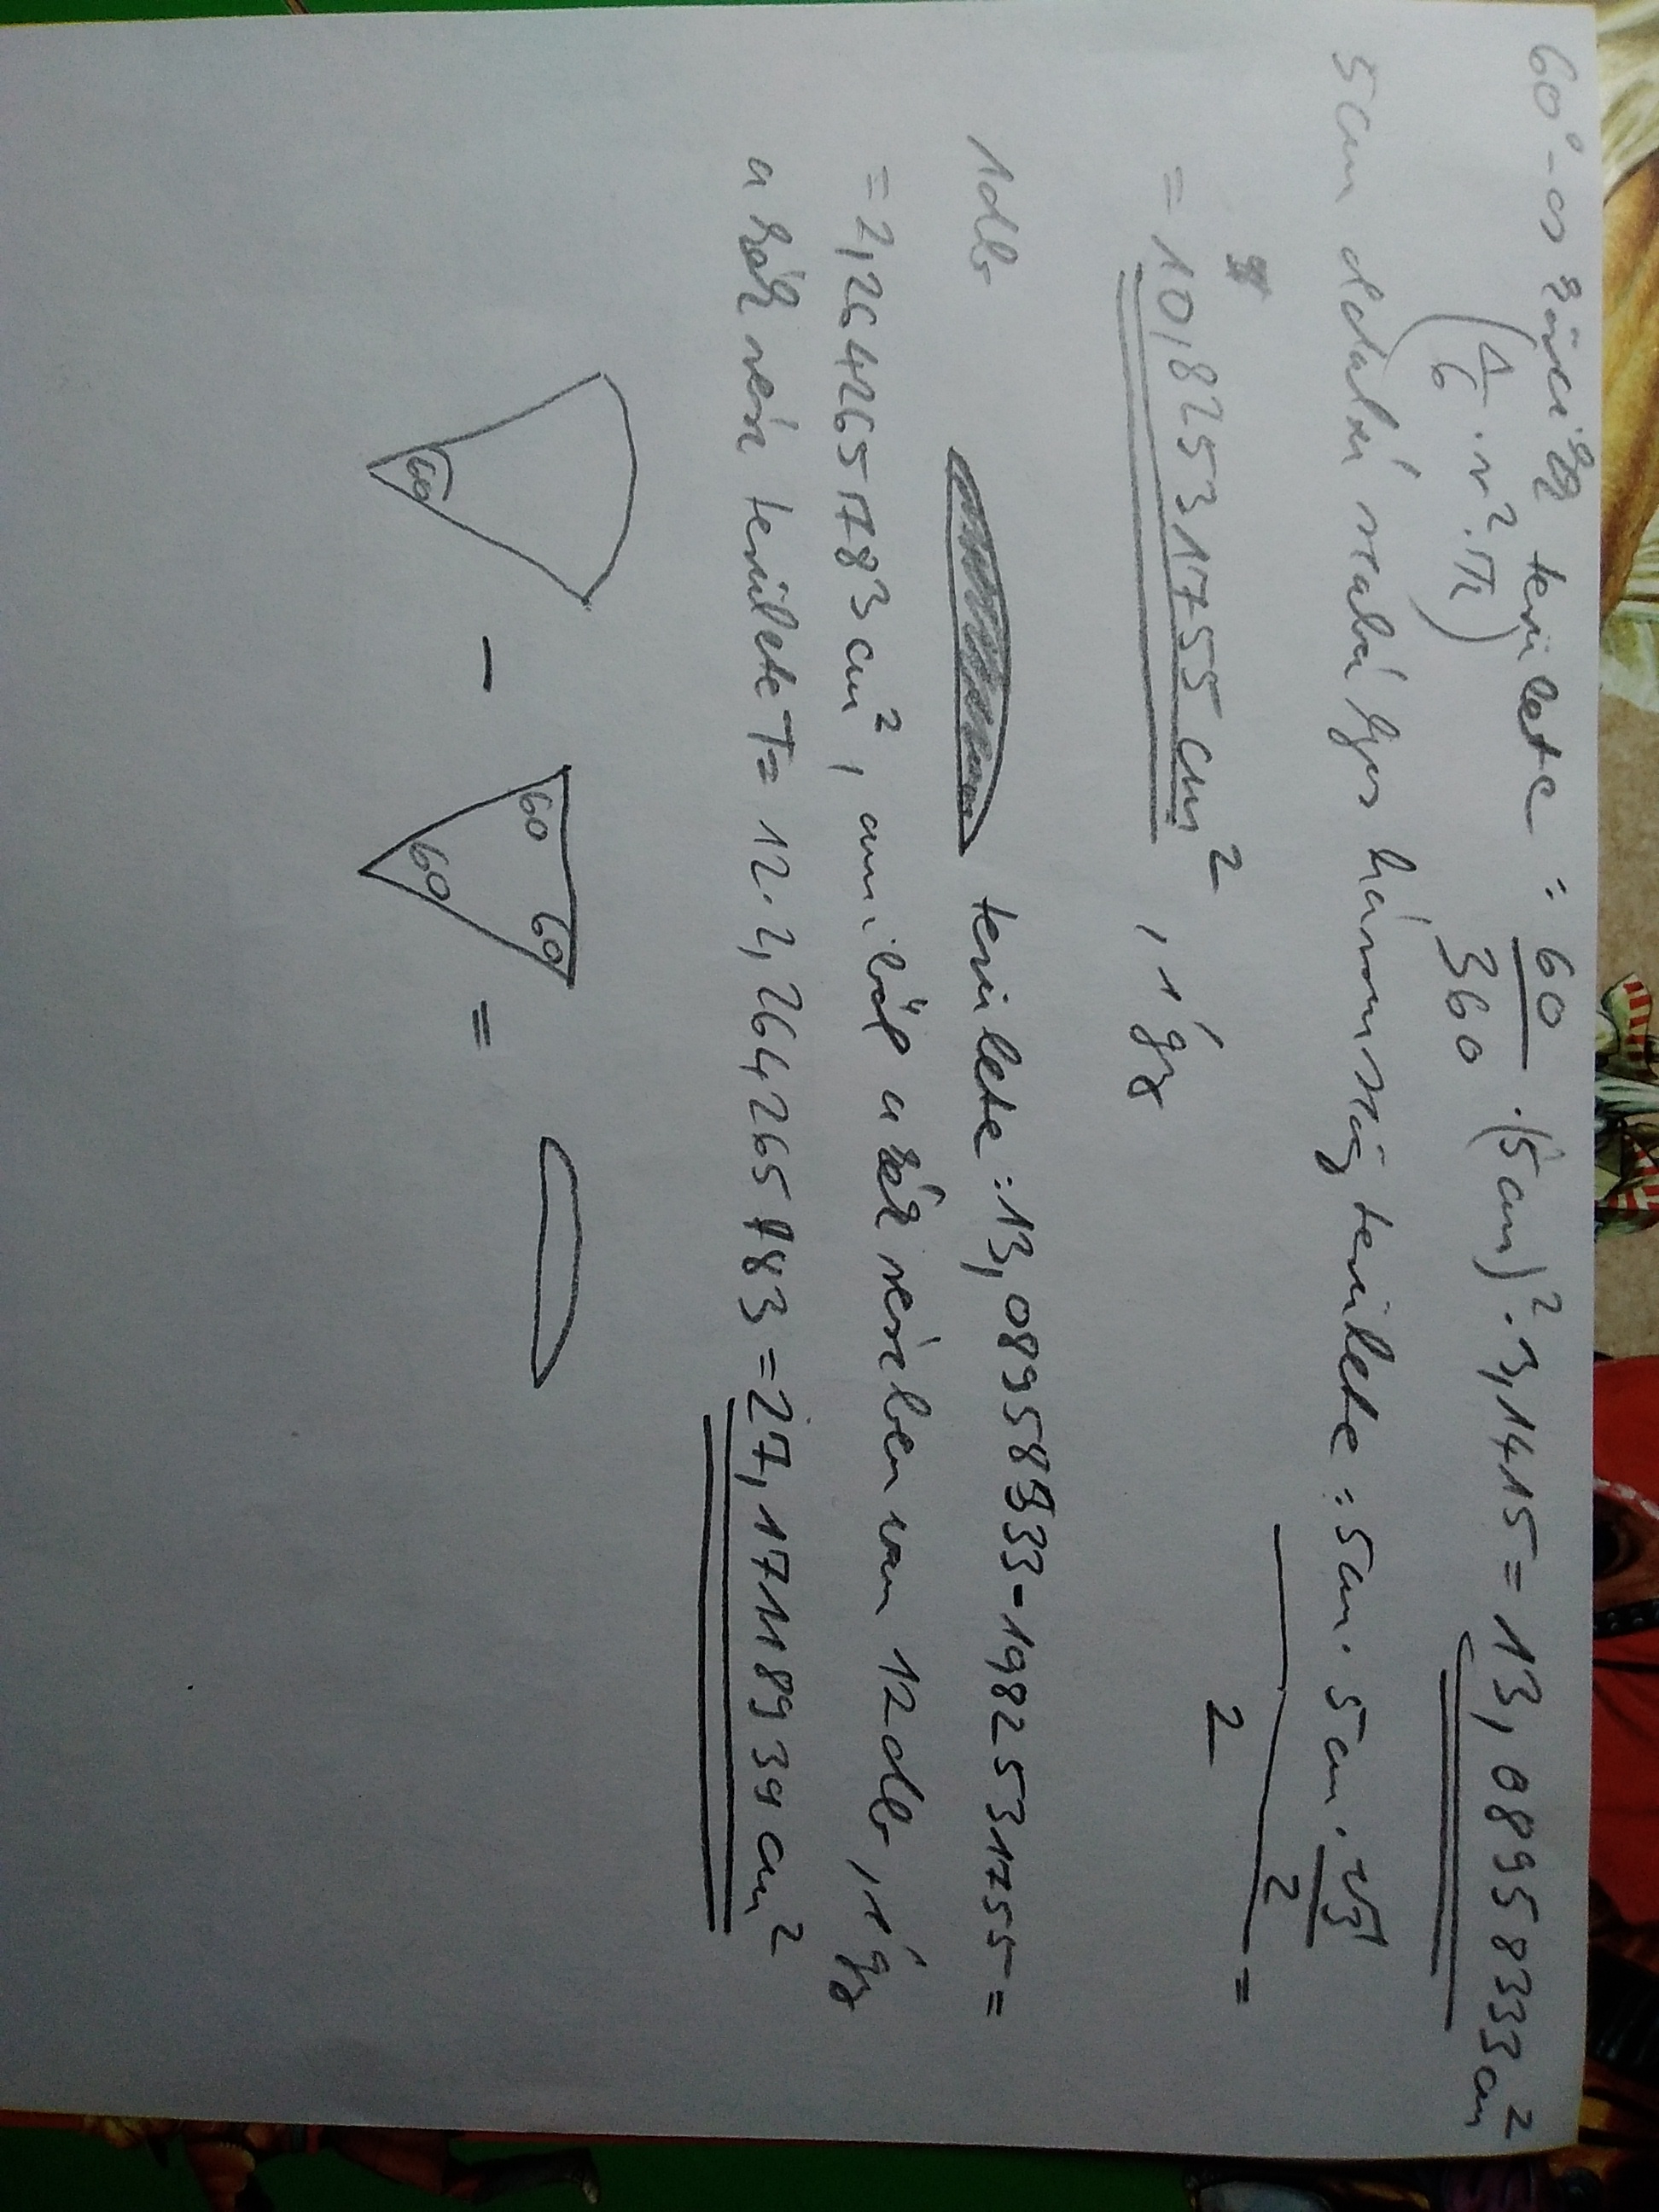 60°-os körcikk területe: 60/360 · (5cm)² · 3,1415 = 13,08958333cm²
(1/6 · r² · π)
5cm oldalú szabályos háromszög területe: 5cm · 5cm · √3/2 / 2 =
= 10,82531755cm², így
1db területe: 13,08958933-1982531755=
= 2,264265783cm², amiből a kék részben van 12db, így
a kék rész területe T= 12·2,264265783=27,17118939cm²
60 - 60 60 60 =